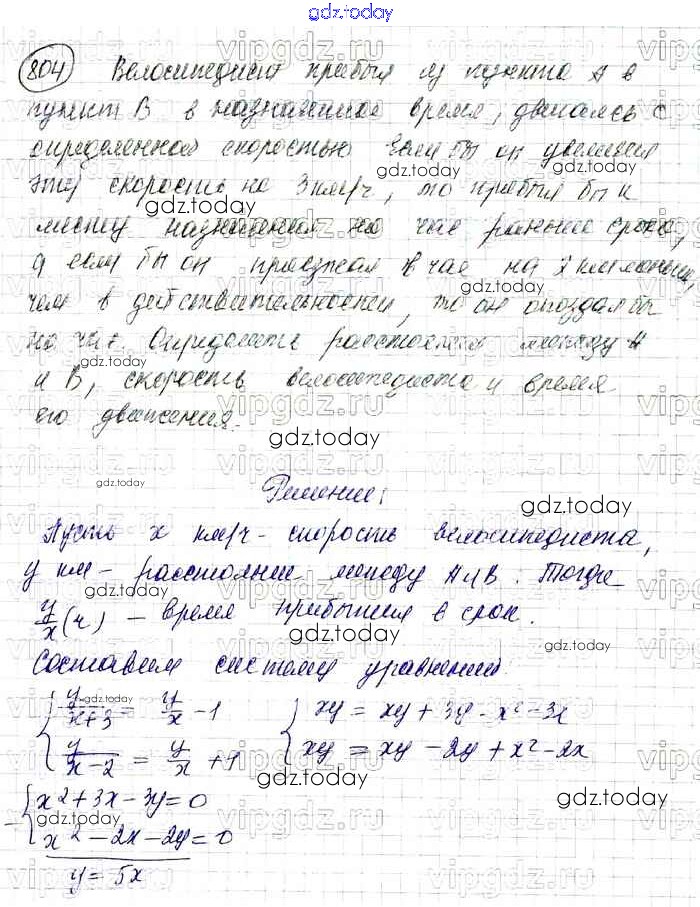 gdz.today
804 Велосипедист прибыл из пункта А в
пункт В в назначенное время, двигаясь с
определенной скоростью. Если бы он увеличил
эту скорость на 3 км/ч, то прибыл бы к
месту назначения на час раньше срока,
а если бы он проезжал в час на 2 км меньше,
чем в действительности, то он опоздал бы
на час. Определите расстояние между А
и В, скорость велосипедиста и время
его движения.
Решение:
Пусть x км/ч - скорость велосипедиста,
y км - расстояние между А и В. Тогда
y/x (ч) - время прибытия в срок.
Составим систему уравнений:
{ y/(x+3) = y/x - 1 { xy = xy + 3y - x² - 3x
{ y/(x-2) = y/x + 1 { xy = xy - 2y + x² - 2x
- { x² + 3x - 3y = 0
{ x² - 2x - 2y = 0
y = 5x